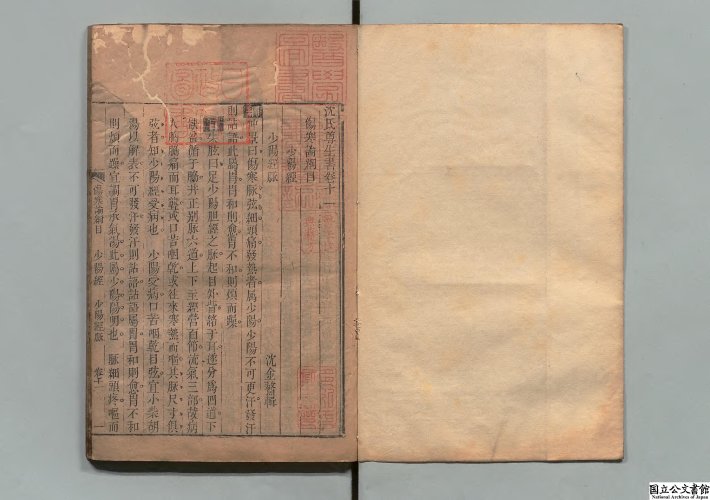 沈氏尊生書卷十一
傷寒論綱目
少陽經
沈金鰲輯
少陽經脈
仲景曰傷寒脈弦細頭痛發熱者屬少陽少陽不可更汗發汗
則詀語此屬胃胃和則愈胃不和則煩而躁
弦曰足少陽胆經之脈起目外眥絡于耳遂分為四道下
缺盆循于脇并正别脈六道上下主經營百節流氣三部故病
人胸脇痛而耳聾或口苦咽乾或往來寒熱而嘔其脈尺寸俱
弦者知少陽經受病也 少陽受病口苦咽乾目弦宜小柴胡
湯以解表不可發汗發汗則詀語詀語屬胃胃和則愈胃不和
則煩而躁宜調胃承氣湯此屬少陽陽明也 脈細頭疼嘔而
傷寒論綱目 少陽經 少陽經脈 卷十一 一
国立公文書館
National Archives of Japan